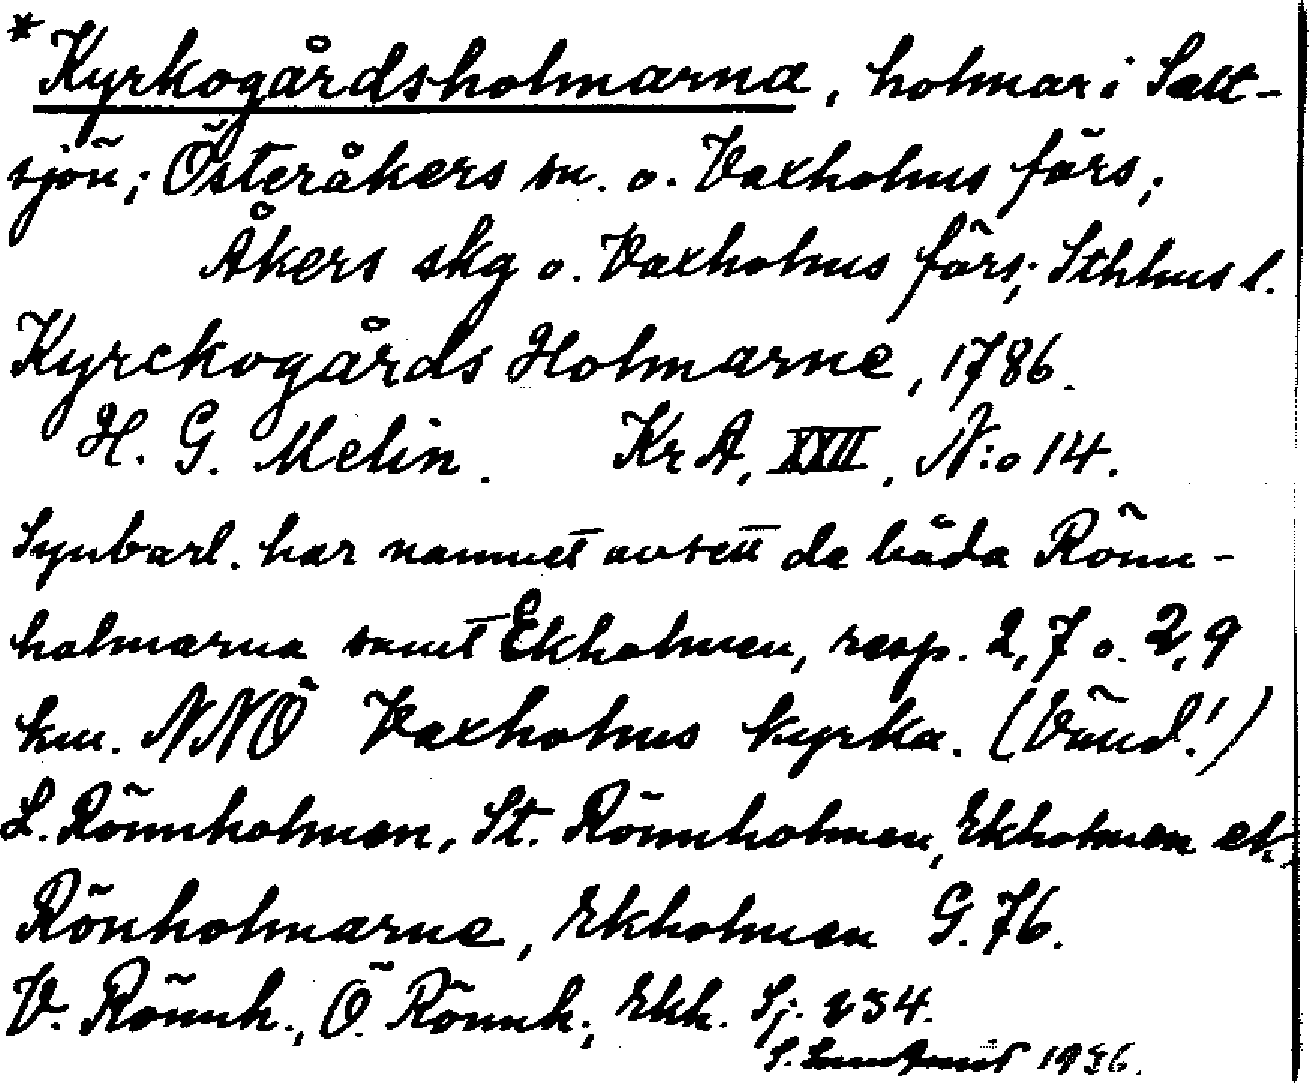 * Kyrkogårdsholmarna, holmar i Salt-
sjön; Österåkers sn. o. Vaxholms förs;
Åkers skg o. Vaxholms förs; Sthlms l.
Kyrckogårds Holmarne, 1786.
H. G. Melin. Kr A, XXII, N:o 14.
Synbarl. har namnet avsett de båda Rönn-
holmarna samt Ekholmen, resp. 2,7 o. 2,9
km. NNÖ Vaxholms kyrka. (Vänd!)
L. Rönnholmen, St. Rönnholmen, Ekholmen ek.
Rönholmarne, Ekholmen G. 76.
V. Rönnh., Ö. Rönnh., Ekh. Sj. 234.
S. 1936.